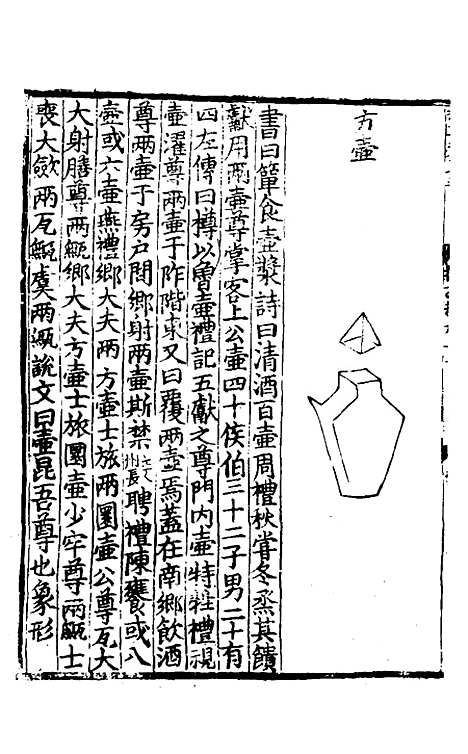 方壺
書曰簞食壺漿詩曰清酒百壺周禮秋嘗冬烝其饋
獻用兩壺尊掌客上公壺四十侯伯三十二子男二十有
四左傳曰樽以魯壺禮記五獻之尊門内壺特牲禮視
壺濯尊兩壺于阼階東又曰覆兩壺焉蓋在南鄉飲酒
尊兩壺于房戶間鄉射兩壺斯禁 州長 聘禮陳饔或八
壺或六壺燕禮鄉大夫兩方壺士旅兩圜壺公尊瓦大
大射膳尊兩甒鄉大夫方壺士旅圜壺少牢尊兩甒士
喪大斂兩瓦甒虞兩甒說文曰壺昆吾尊也象形